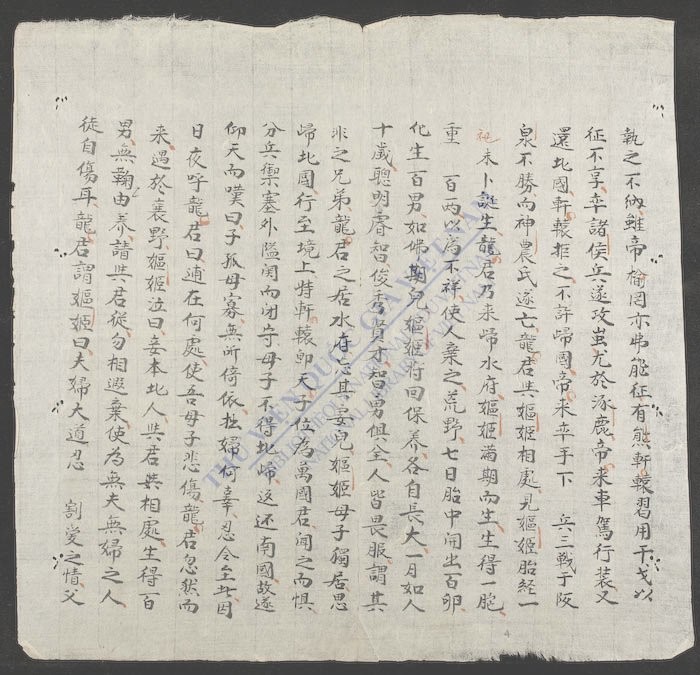 執之不納雖帝榆罔亦弗能征有熊軒轅習用干戈以
征不享卒諸侯兵遂攻蚩尤於涿鹿帝来車駕行装又
還北國軒轅拒之不許歸國帝来卒手下 兵三戦于阪
泉不勝向神農氏遂亡龍君與嫗姬相處見嫗姬胎経一
祀未卜誕生龍君乃来歸水府嫗姬滿期而生生得一胞
重 百両以為不祥使人棄之荒野七日胎中開出百卵
化生百男如姊期兒嫗姬将回保养各自長大一月如人
十歲聰明睿智俊秀賢才智勇俱全人皆畏服謂其
非之兄弟龍君之居水府忘其妻兒嫗姬母子獨居思
歸北國行至境上時軒轅即天子位為萬國君聞之而惧
分兵禦塞外隘関而闭守母子不得北歸返还南國故遂
仰天而嘆曰子孤母寡無所倚依拙婦何辜忍令至此因
日夜呼龍君曰逋在何處使吾母子悲傷龍君忽然而
来遇於襄野嫗姬泣曰妾本北人與君共相處生得百
男無鞠由养請與君從勿相遐棄使為無夫無婦之人
徒自傷耳龍君謂嫗姬曰夫婦大道忍 割愛之情父
THƯ VIỆN QUỐC GIA VIỆT NAM
NATIONAL LIBRARY OF VIETNAM